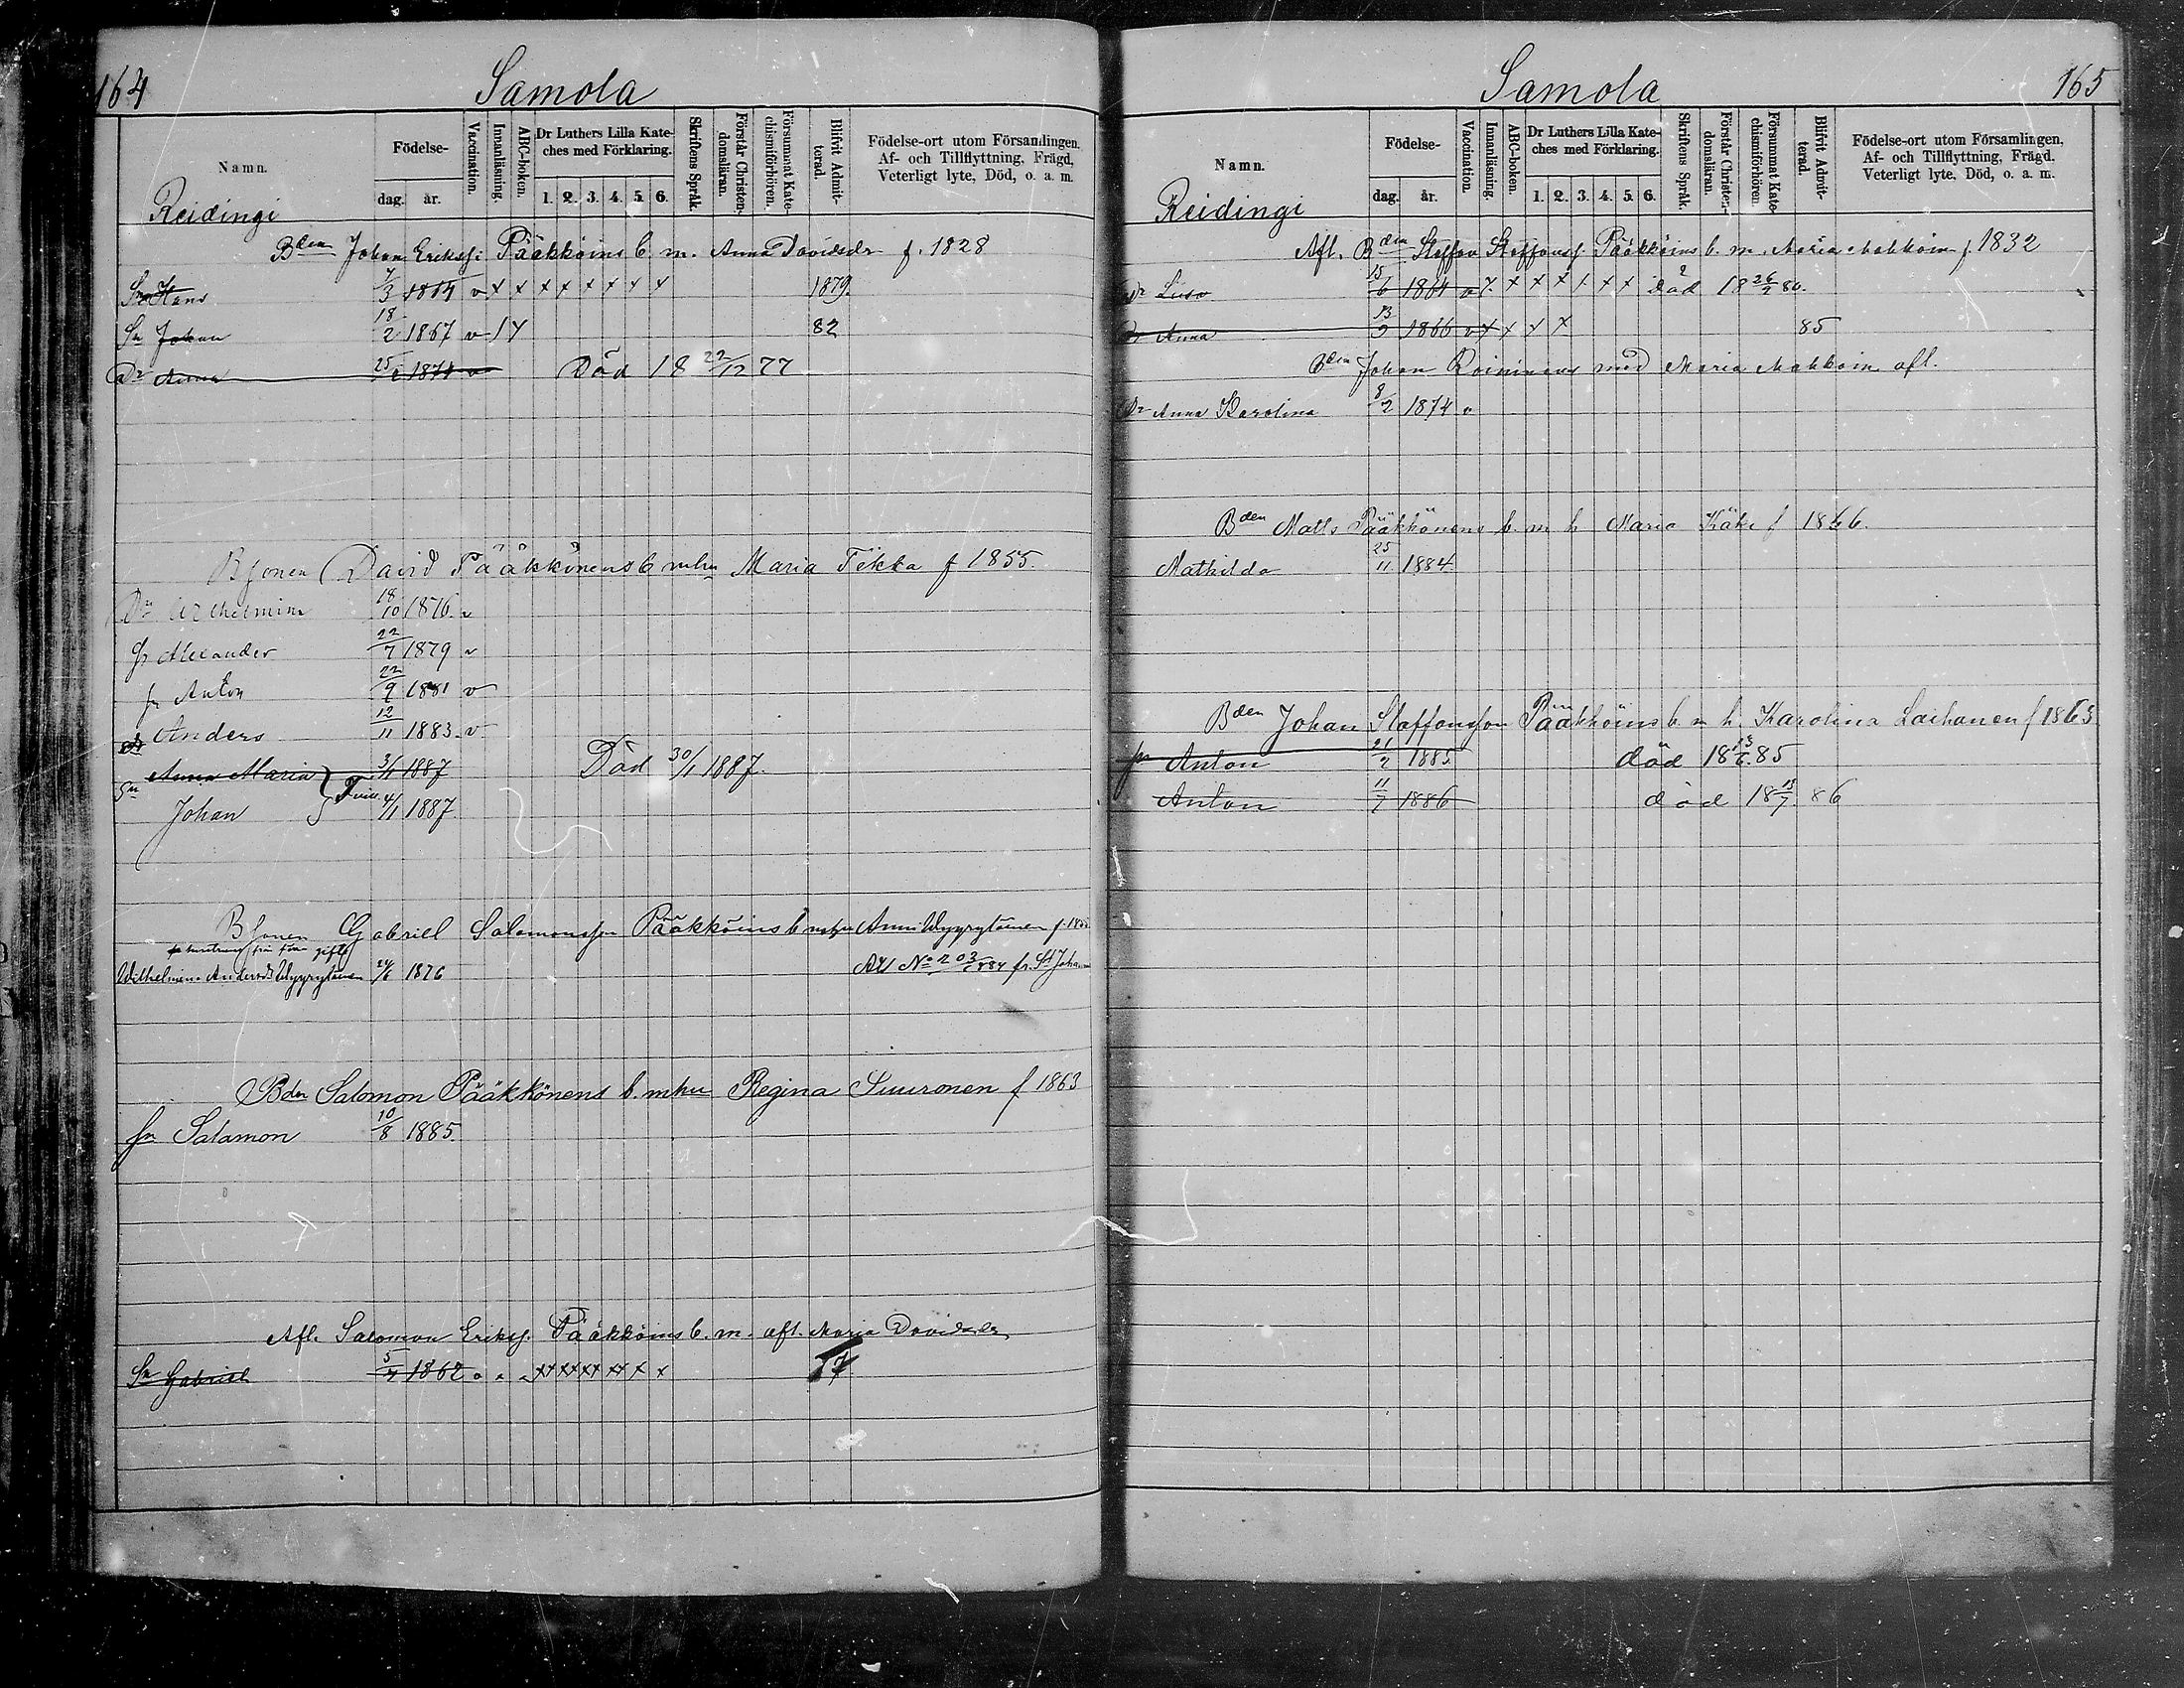 164
Samola
Namn.
Födelse-
dag. år.
Vaccination.
Innanläsning.
ABC-boken.
Dr Luthers Lilla Kate-
ches med Förklaring.
1. 2. 3. 4. 5. 6.
Skriftens Språk.
Förstår Christen-
domsläran.
Försummat Kate-
chismiförhören.
Blifvit Admit-
terad.
Födelse-ort utom Församlingen.
Af- och Tillflyttning, Frägd,
Veterligt lyte, Död, o. a. m.
Reidingi
Bden Johan Erikss: Pääkköins b. m. Anna Davidsdr f. 1828
Sn Hans 7/3 1864 v x x x x x x x x 1879.
Sn Johan 18/2 1867 v 82
Dr Anna 25/2 1871 v Död 18 22/12 77
Bsonen David Pääkkönens b m hu Maria Tekka f 1855.
Dr Wilhelmina 18/10 1876. v
sn Alexander 22/7 1879 v
sn Anton 22/9 1881 v
Anders 12/11 1883. v
Anna Maria 3/1 1887 Död 30/1 1887.
sn Johan 4/1 1887
Bsonen Gabriel Salomonsson Pääkköins b m hu Anni f. 1855
Wilhelmina Andersdr 24/6 1876 Att No 203/1884 fr. St Johan
Bden Salomon Pääkkönens b. m hu Regina Suuronen f 1863
sn Salamon 10/8 1885.
Afl. Salomon Erikss. Pääkköins b. m. afl. Maria Davidsdr
Sn Gabriel 5/4 1862 v xx xx xx xx x x
165
Samola
Namn.
Födelse-
dag. år.
Vaccination.
Innanläsning.
ABC-boken.
Dr Luthers Lilla Kate-
ches med Förklaring.
1. 2. 3. 4. 5. 6.
Skriftens Språk.
Förstår Christen-
domsläran.
Försummat Kate-
chismiförhören.
Blifvit Admit-
terad.
Födelse-ort utom Församlingen,
Af- och Tillflyttning, Frägd.
Veterligt lyte, Död, o. a. m.
Reidingi
Afl. Bden Staffan Staffanss Pääkköins b. m. Maria Mohkoin f. 1832
Dr Lisa 15/6 1864 v x x x x x x x död 18 26/2 80.
Dr Anna 13/9 1866 v x x x x 85
Bden Johan Roininens med Maria Mohkoin afl.
Dr Anna Karolina 8/2 1874 v
Bden Matts Pääkkönens b. m h Maria Käki f 1866.
Mathilda 25/11 1884
Bden Johan Staffansson Pääkköins b m h. Karolina Laihanen f 1863
sn Anton 21/2 1885 död 18 13/6 85
Anton 11/7 1886 död 18 15/7 86